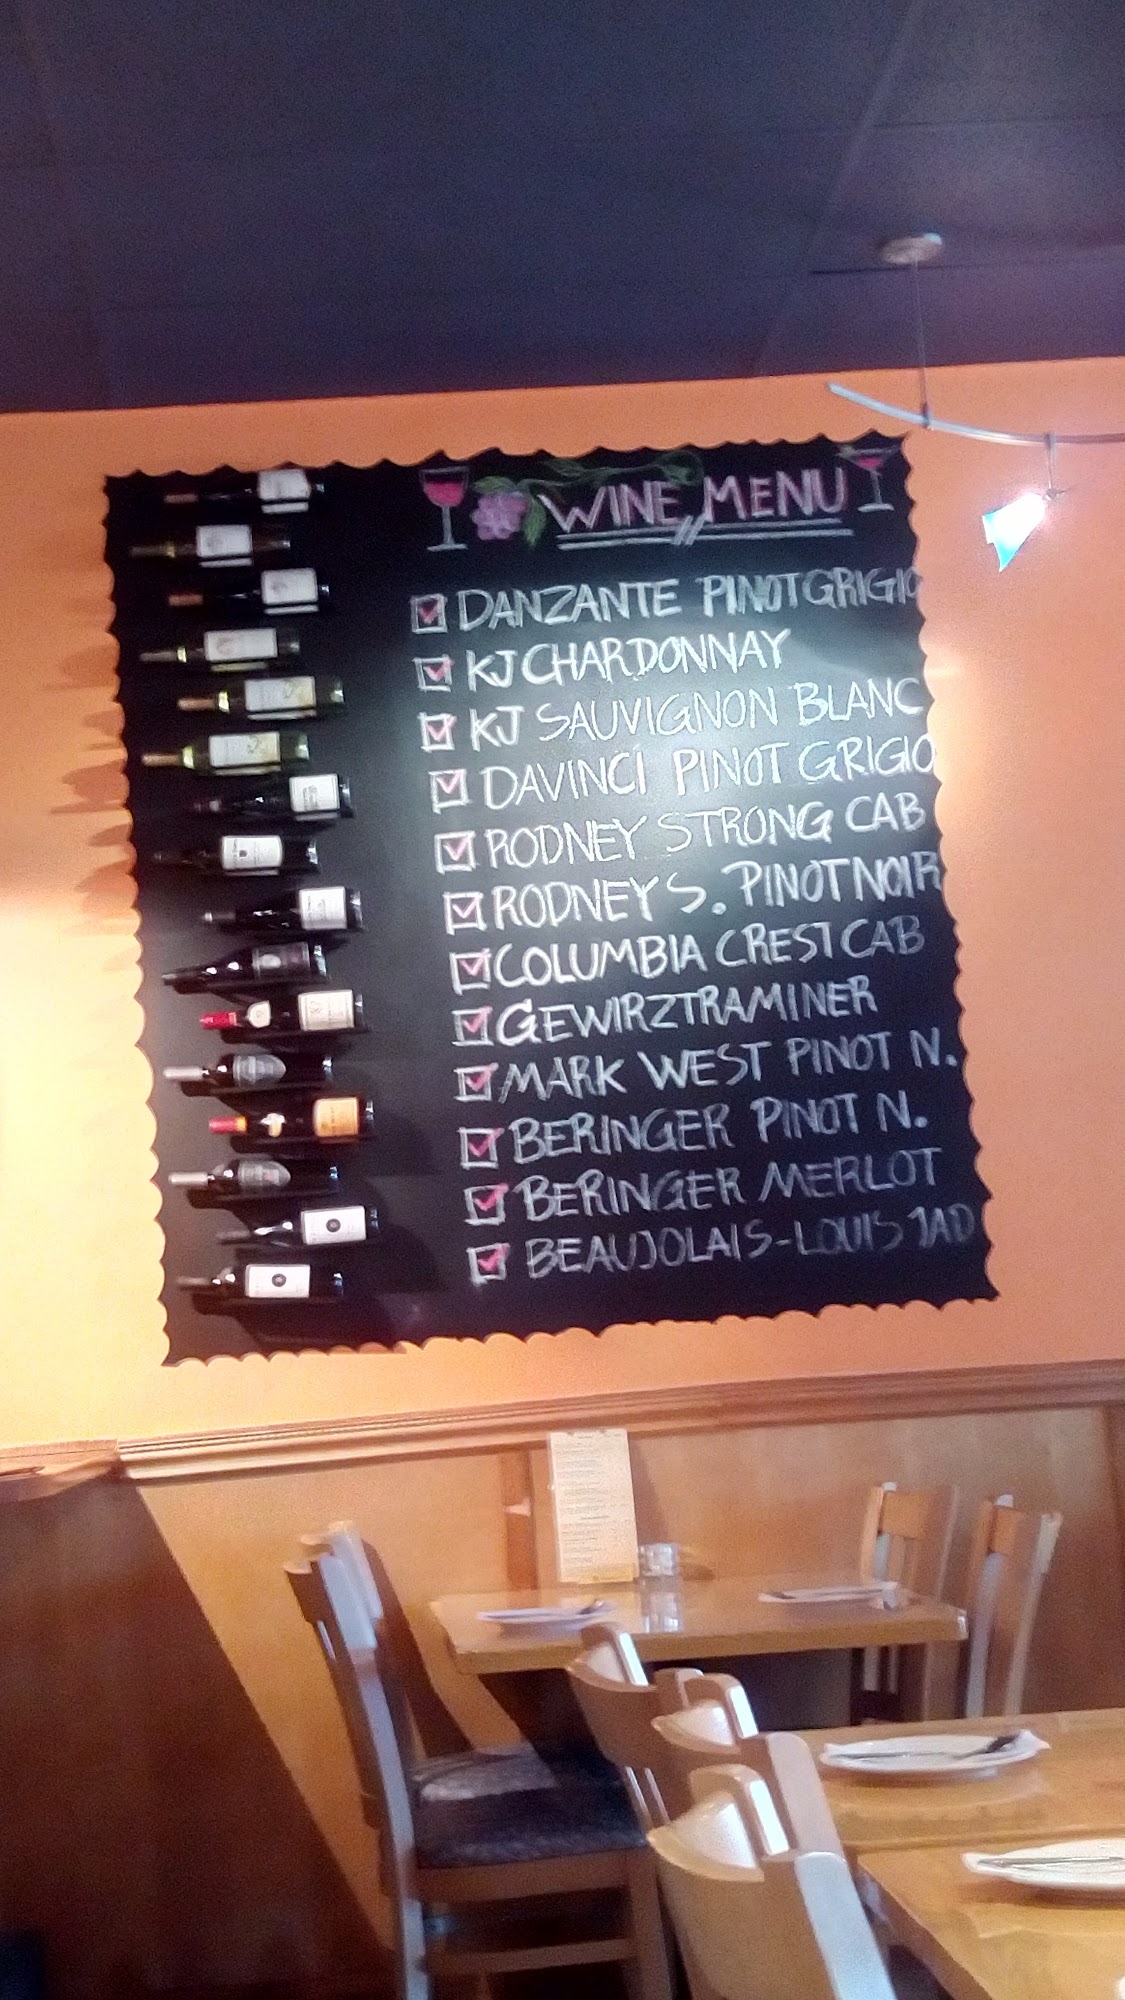 WINE MENU
DANZANTE PINOT GRIGIO
KJ CHARDONNAY
KJ SAUVIGNON BLANC
DAVINCI PINOT GRIGIO
RODNEY STRONG CAB
RODNEY S. PINOT NOIR
COLUMBIA CREST CAB
GEWIRZTRAMINER
MARK WEST PINOT N.
BERINGER PINOT N.
BERINGER MERLOT
BEAUJOLAIS-LOUIS JAD